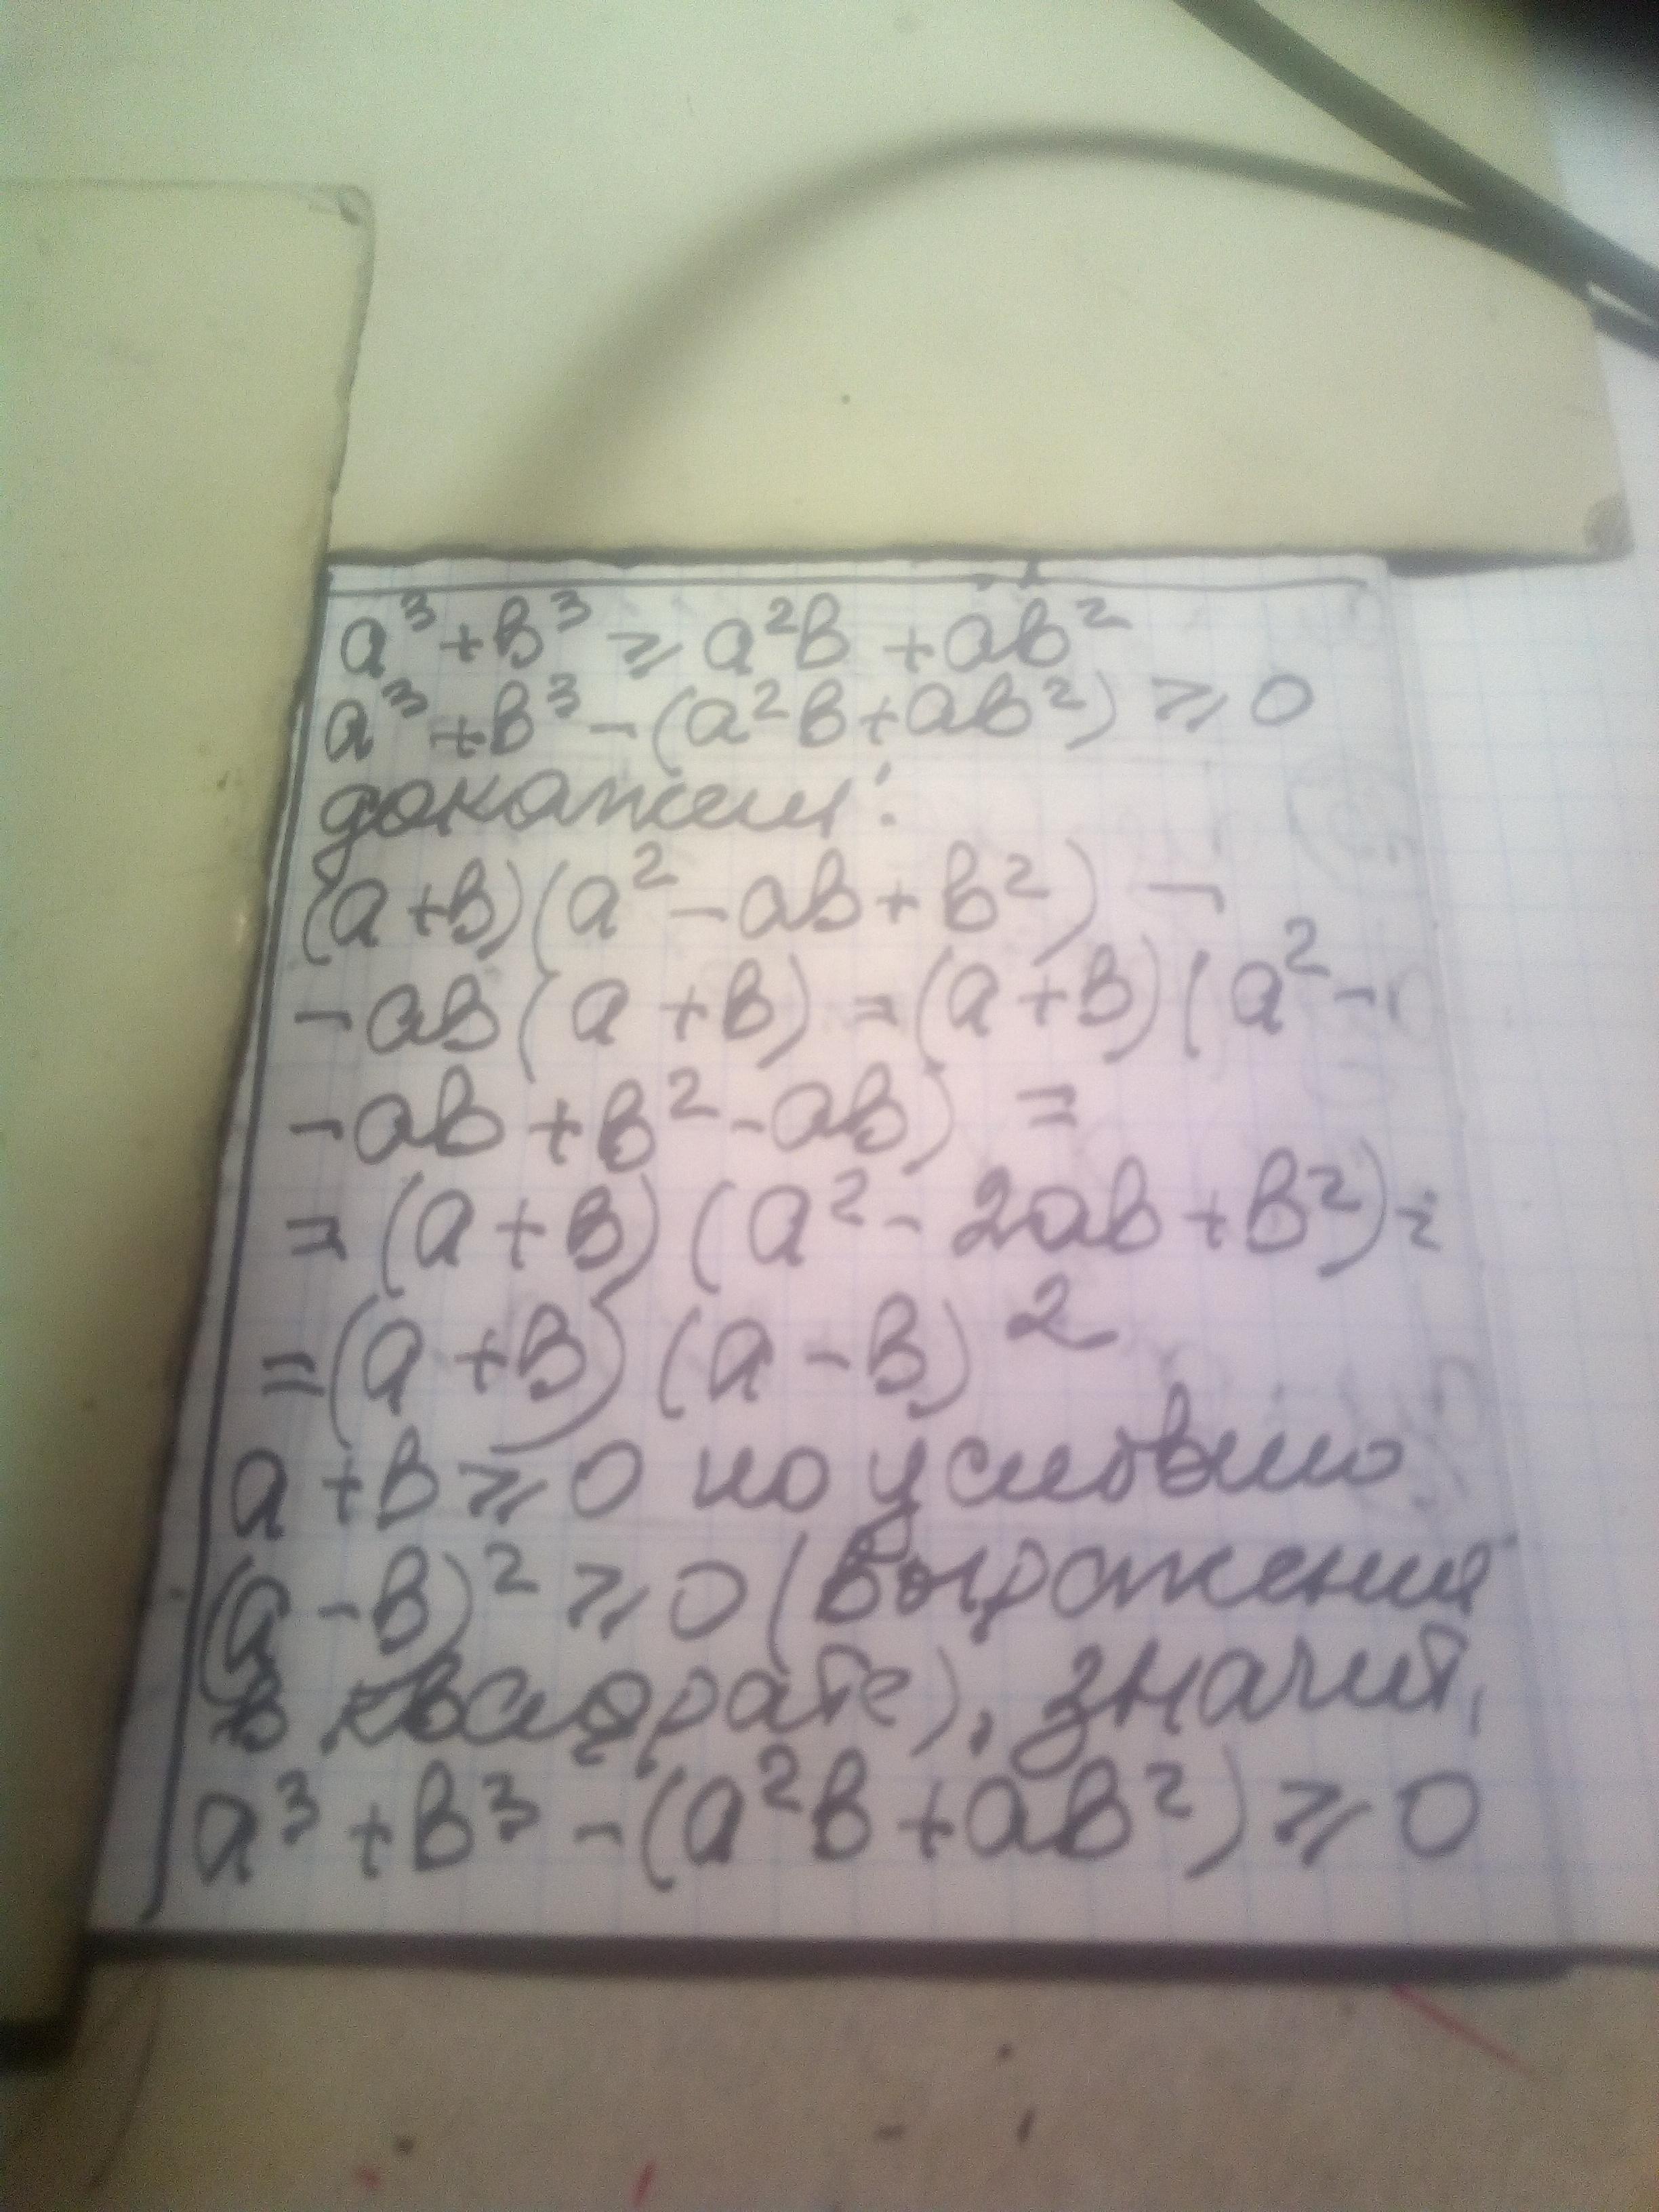 a³+b³ ⩾ a²b +ab²
a³+b³-(a²b+ab²) ⩾ 0
докажем:
(a+b)(a²-ab+b²) -
-ab(a+b) =(a+b)(a²-
-ab+b²-ab) =
=(a+b)(a²-2ab+b²)=
=(a+b)(a-b)²
a+b⩾0 по условию
(a-b)²⩾0(выражения
в квадрате), значит,
a³+b³-(a²b+ab²)⩾0